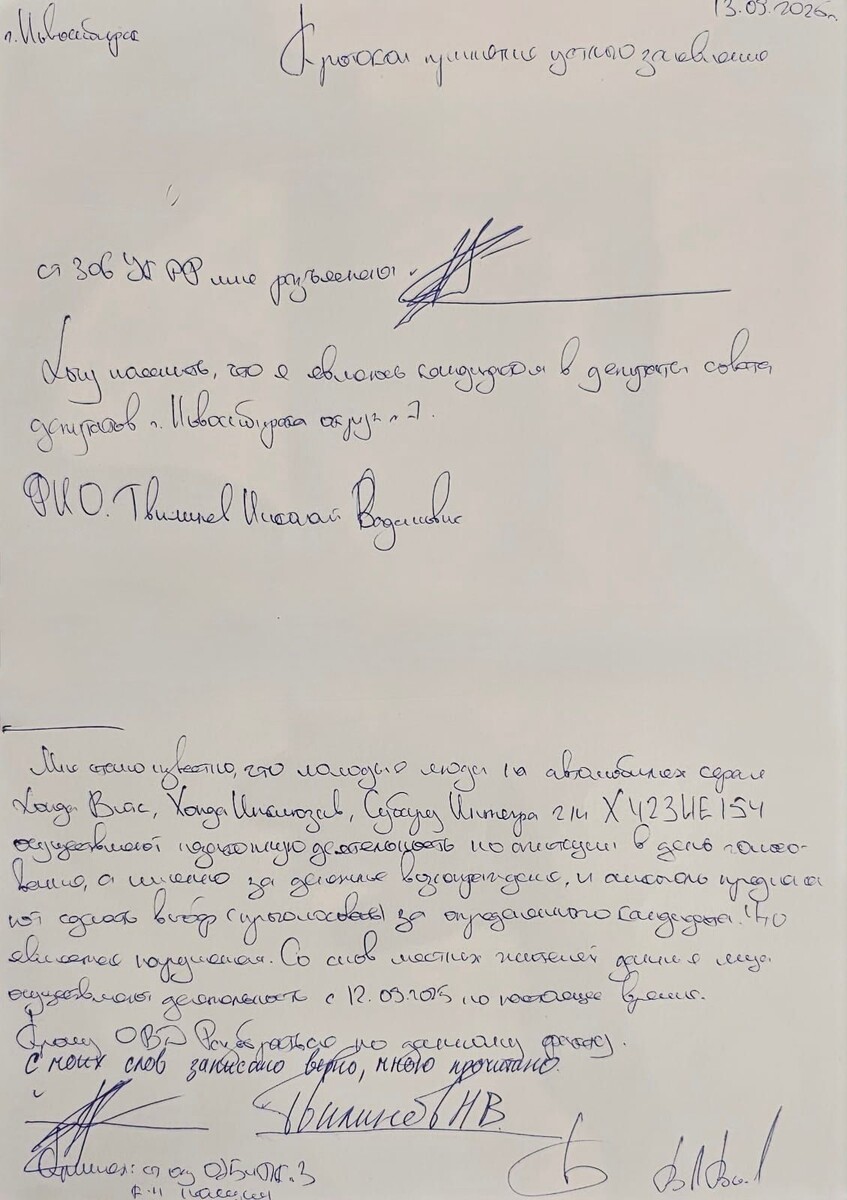 г. Новосибирск
13.09.2025г.
Протокол принятия устного заявления
ст 306 УК РФ мне разъяснена
Хочу пояснить, что я являюсь кандидатом в депутаты совета
депутатов г. Новосибирска округ №7.
ФИО. Твилинев Николай Вадимович
Мне стало известно, что молодые люди на автомобилях серая
Хонда, Хонда, Субару г/н Х423НЕ154
осуществляют деятельность по агитации в день голосо-
вания, а именно за денежное вознаграждение, и алкоголь предлага
ют сделать выбор (проголосовать) за определенного кандидата. Что
является нарушением. Со слов местных жителей данные лица
осуществляют деятельность с 12.09.2025 по настоящее время.
Прошу ОВД Разобраться по данному факту.
С моих слов записано верно, мною прочитано.
Н.В.
Принял: ст